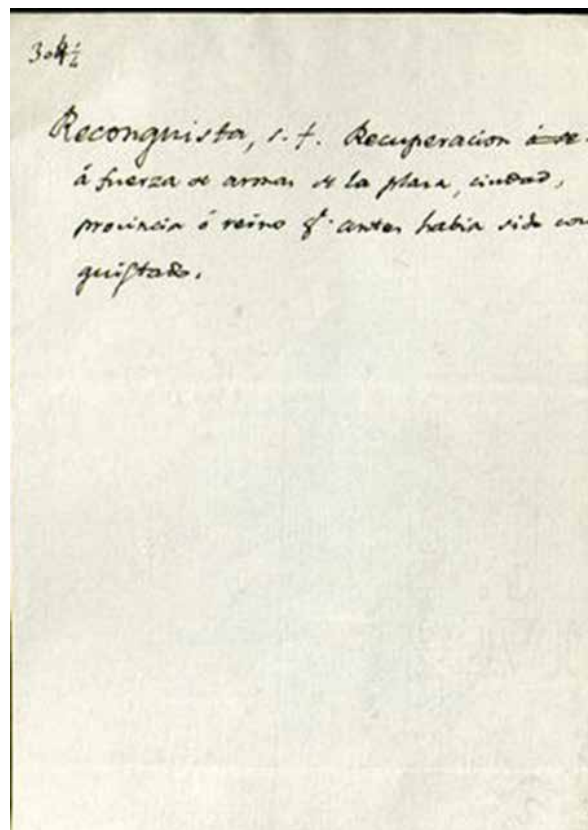 Reconquista, s. f. Recuperacion
á fuerza de armas de la plaza, ciudad,
provincia ó reino q.e antes habia sido con
quistado.